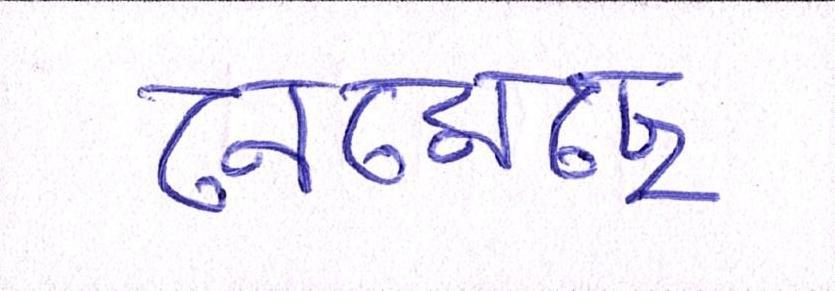 নেমেছে